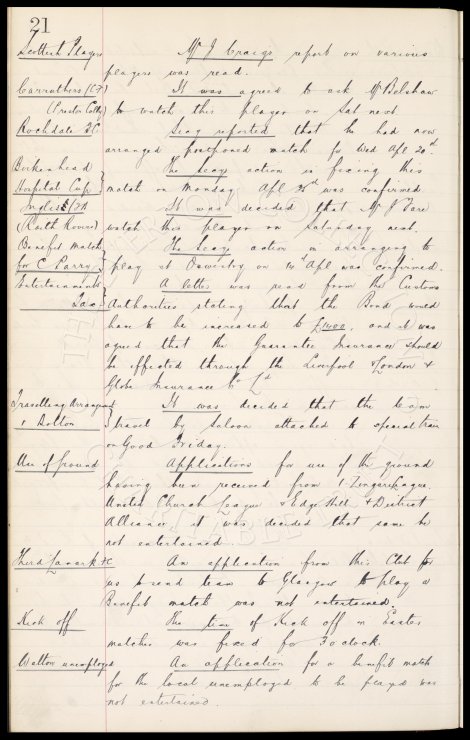 21
Scottish Players Mr J Craigs report on various
players was read.
Carruthers (CF) It was agreed to ask Mr Belshaw
to watch this player on Sat next
Rochdale FC Secy reported that he had now
arranged postponed match for Wed Apl 20th.
Birkenhead The Secys action in fixing this
Hospital Cup match on Monday Apl was confirmed
Inglis It was decided that Mr
(Raith Rovers) watch this player on Saturday next.
Benefit Match The Secys action in arranging to
for C Parry play at Oswestry on Apl was confirmed.
Entertainments A letter was read from the Customs
Tax Authorities stating that the Bond would
have to be increased to £1400, and it was
agreed that the Guarantee Insurance should
be effected through the Liverpool & London &
Globe Insurance Co Ld
Travelling Arrangements It was decided that the team
Bolton travel by Saloon attached to special train
on Good Friday.
Use of Ground Applications for use of the ground
having been received from League,
United Church League & Edge Hill & District
Alliance it was decided that same be
not entertained
Third Lanark FC An application from this Club for
us to send team to Glasgow to play a
Benefit match was not entertained.
Kick off The time of Kick off in Easter
matches was fixed for 3 oclock.
Walton unemployed An application for a benefit match
for the local unemployed to be played was
not entertained.